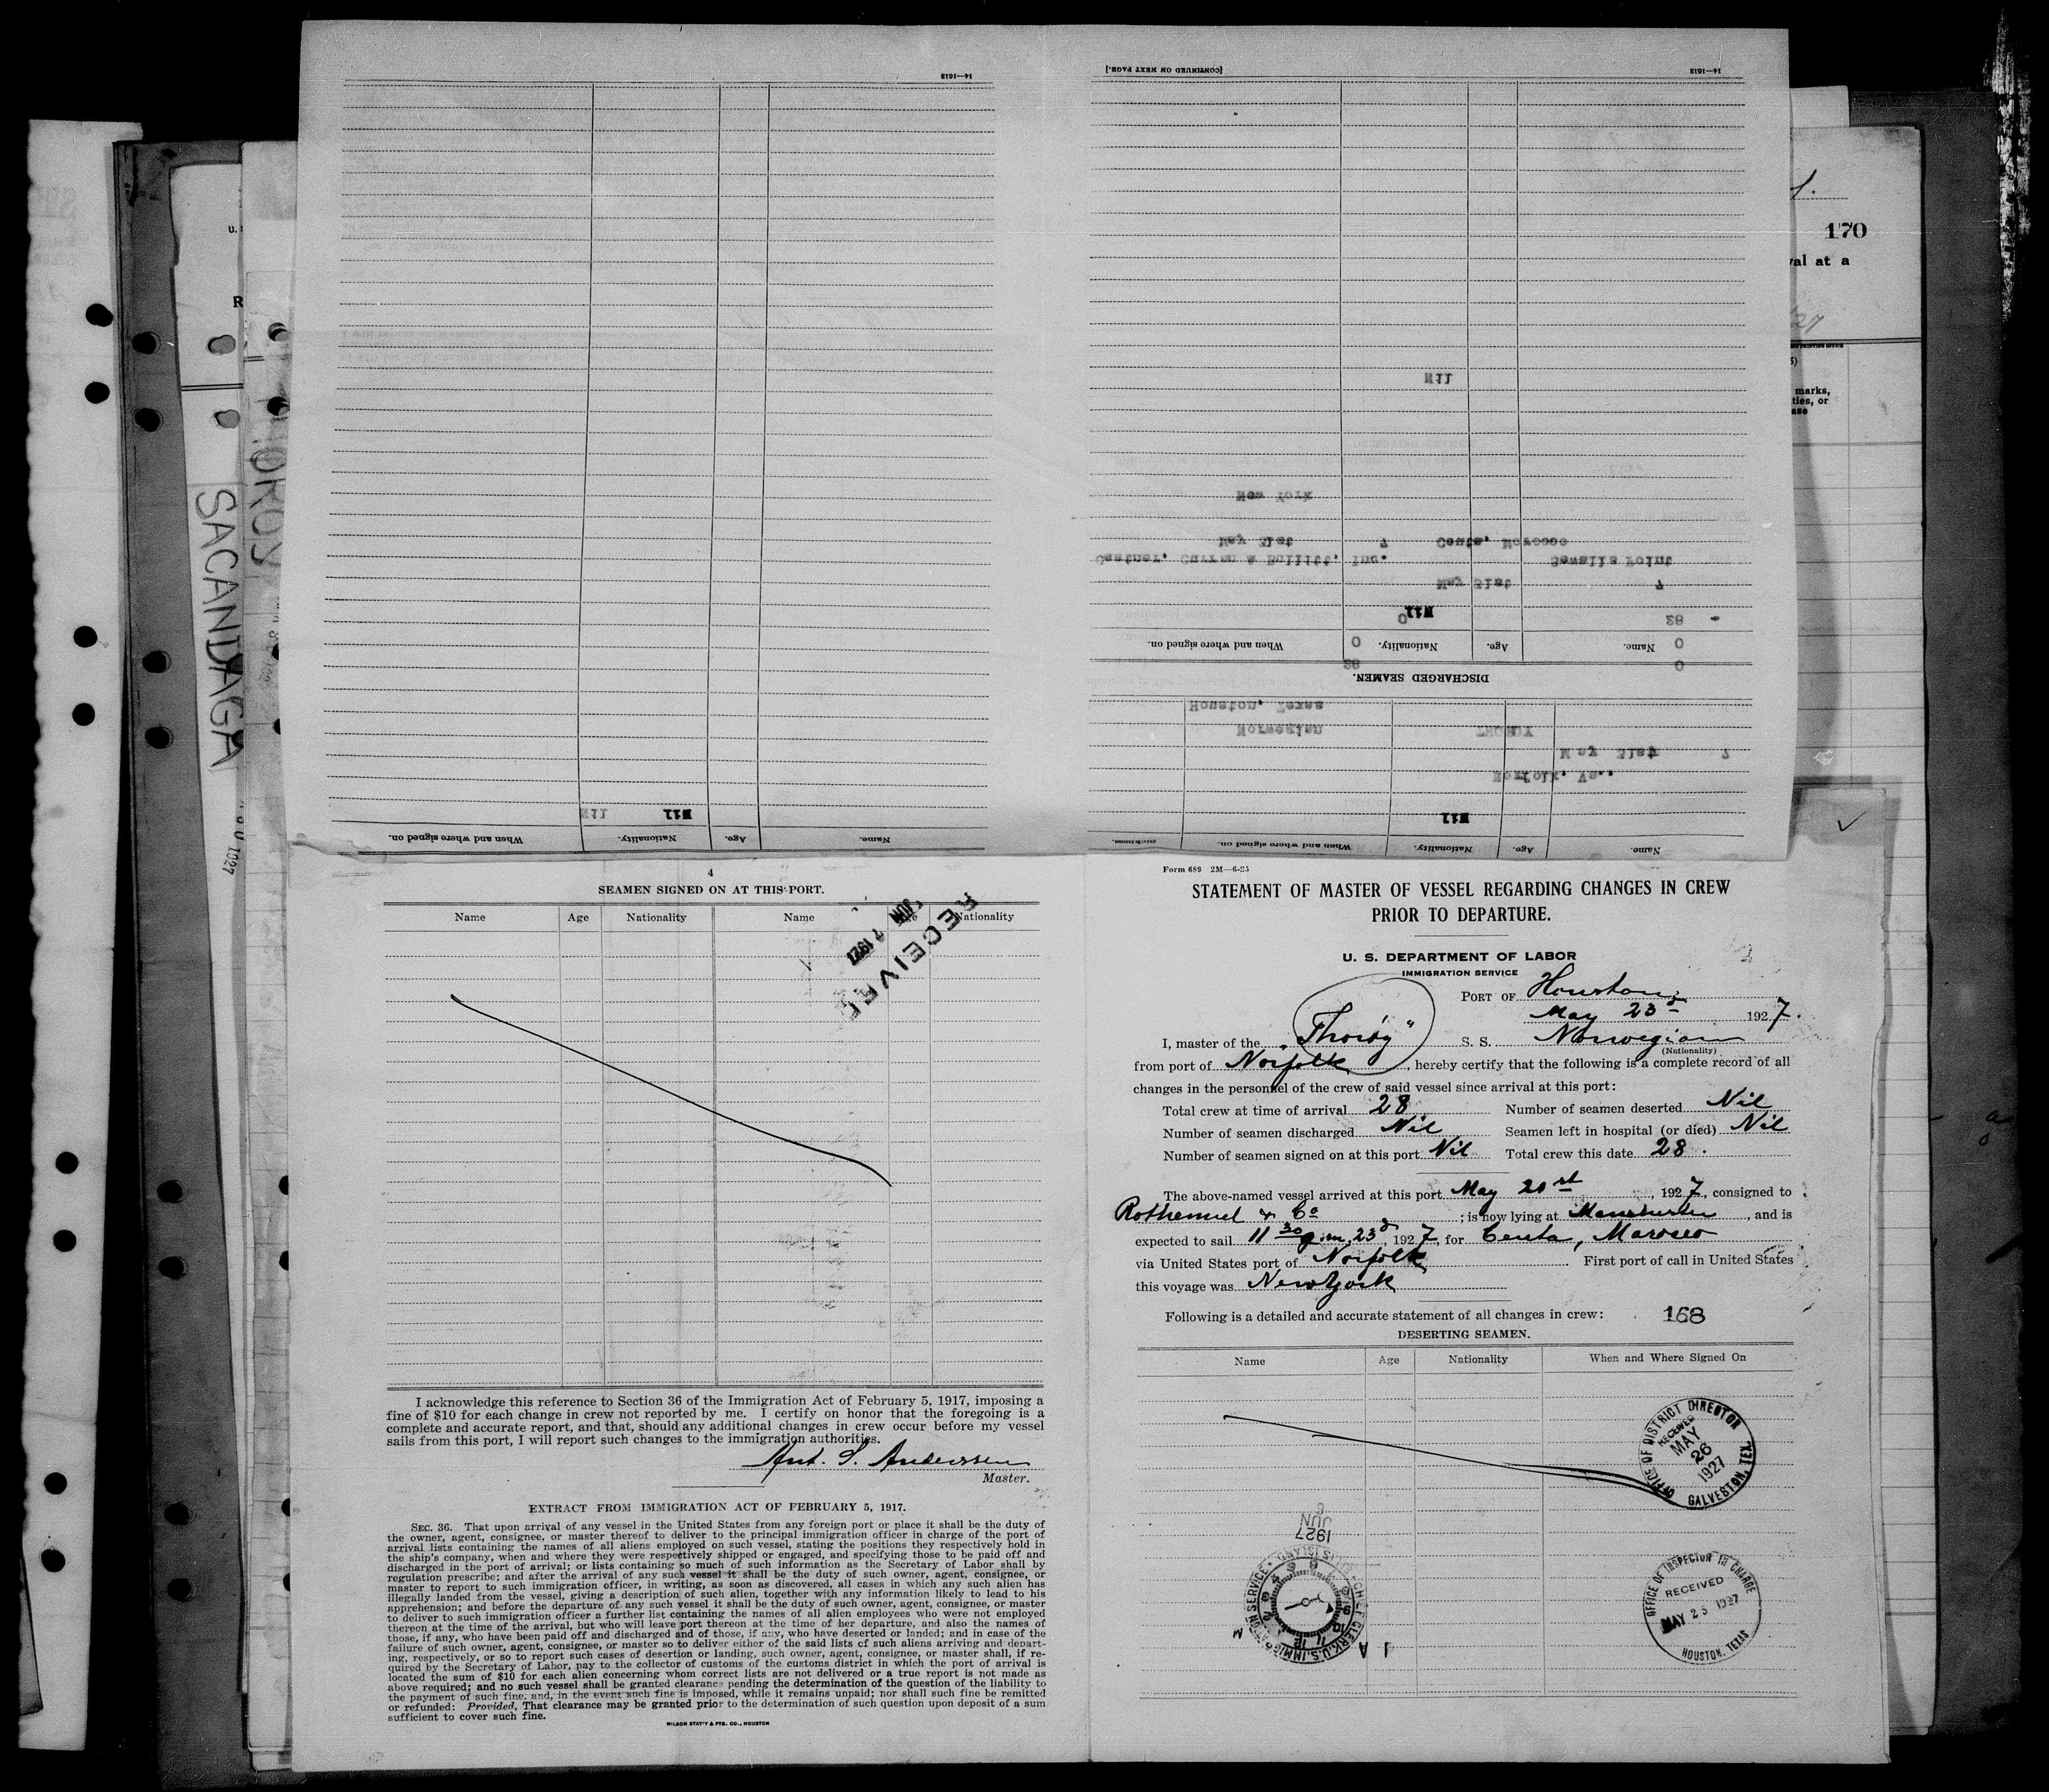 14—1613
[CONTINUED ON NEXT PAGE.]
14—1613
170
val at a
marks,
ties, or
ase
U.
R
SACANDAGA
Nil
New York
May 31st 7 Ceuta, Morocco
Castner, Curran & Bullitt, Inc. Sewalls Point
May 31st 7
Nil
0
28
Name. Age. Nationality. When and where signed on.
0
0
28
0
DISCHARGED SEAMEN.
Houston, Texas
Norwegian THORØY
May 31st 7
Norfolk, Va.
Nil
Name. Age. Nationality. When and where signed on. sickness.
Nil Nil
Name. Age. Nationality. When and where signed on.
4
SEAMEN SIGNED ON AT THIS PORT.
Name Age Nationality Name Age Nationality
RECEIVED
JUN 7 1927
I acknowledge this reference to Section 36 of the Immigration Act of February 5, 1917, imposing a
fine of $10 for each change in crew not reported by me. I certify on honor that the foregoing is a
complete and accurate report, and that, should any additional changes in crew occur before my vessel
sails from this port, I will report such changes to the immigration authorities.
Ant. S. Anderssen
Master.
EXTRACT FROM IMMIGRATION ACT OF FEBRUARY 5, 1917.
SEC. 36. That upon arrival of any vessel in the United States from any foreign port or place it shall be the duty of
the owner, agent, consignee, or master thereof to deliver to the principal immigration officer in charge of the port of
arrival lists containing the names of all aliens employed on such vessel, stating the positions they respectively hold in
the ship's company, when and where they were respectively shipped or engaged, and specifying those to be paid off and
discharged in the port of arrival; or lists containing so much of such information as the Secretary of Labor shall by
regulation prescribe; and after the arrival of any such vessel it shall be the duty of such owner, agent, consignee, or
master to report to such immigration officer, in writing, as soon as discovered, all cases in which any such alien has
illegally landed from the vessel, giving a description of such alien, together with any information likely to lead to his
apprehension; and before the departure of any such vessel it shall be the duty of such owner, agent, consignee, or master
to deliver to such immigration officer a further list containing the names of all alien employees who were not employed
thereon at the time of the arrival, but who will leave port thereon at the time of her departure, and also the names of
those, if any, who have been paid off and discharged and of those, if any, who have deserted or landed; and in case of the
failure of such owner, agent, consignee, or master so to deliver either of the said lists of such aliens arriving and depart-
ing, respectively, or so to report such cases of desertion or landing, such owner, agent, consignee, or master shall, if re-
quired by the Secretary of Labor, pay to the collector of customs of the customs district in which the port of arrival is
located the sum of $10 for each alien concerning whom correct lists are not delivered or a true report is not made as
above required; and no such vessel shall be granted clearance pending the determination of the question of the liability to
the payment of such fine, and, in the event such fine is imposed, while it remains unpaid; nor shall such fine be remitted
or refunded: Provided, That clearance may be granted prior to the determination of such question upon deposit of a sum
sufficient to cover such fine.
WILSON STAT'Y & PTG. CO., HOUSTON
Form 689 2M—6-25
STATEMENT OF MASTER OF VESSEL REGARDING CHANGES IN CREW
PRIOR TO DEPARTURE.
U. S. DEPARTMENT OF LABOR
IMMIGRATION SERVICE
PORT OF Houston
May 23d 1927.
I, master of the "Thorøy" S. S. Norwegian
(Nationality)
from port of Norfolk, hereby certify that the following is a complete record of all
changes in the personnel of the crew of said vessel since arrival at this port:
Total crew at time of arrival 28 Number of seamen deserted Nil
Number of seamen discharged Nil Seamen left in hospital (or died) Nil
Number of seamen signed on at this port Nil Total crew this date 28.
The above-named vessel arrived at this port May 21st, 1927, consigned to
Rothermel & Co; is now lying at Manchester, and is
expected to sail 11 30 p.m. 23d, 1927, for Ceuta, Marocco
via United States port of Norfolk. First port of call in United States
this voyage was New York
Following is a detailed and accurate statement of all changes in crew: 168
DESERTING SEAMEN.
Name Age Nationality When and Where Signed On
OFFICE OF DISTRICT DIRECTOR
RECEIVED
MAY
26
1927
GALVESTON, TEX.
1927
JUN
6
CHIEF CLERK U.S. IMMIGRATION SERVICE · ELLIS ISLAND
OFFICE OF INSPECTOR IN CHARGE
RECEIVED
MAY 25 1927
HOUSTON, TEXAS